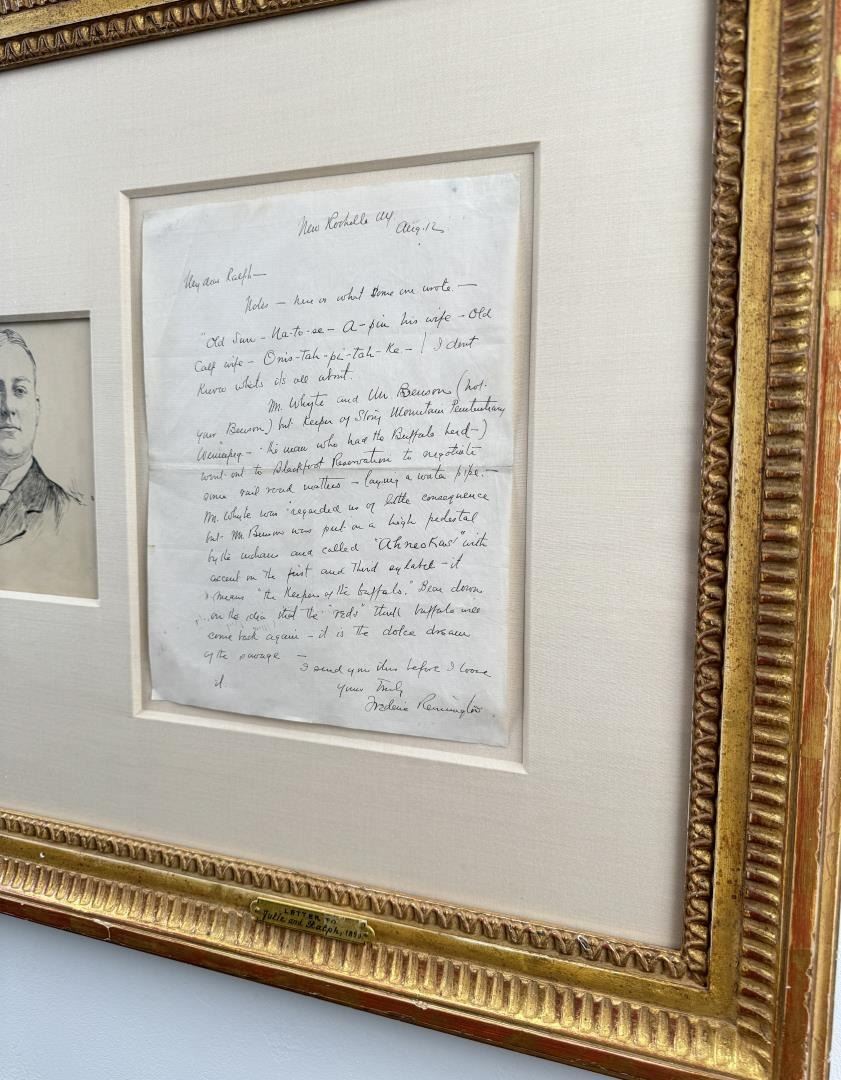 New Rochelle NY.
Aug. 12
My dear Ralph—
Notes — here is what some one wrote.—
"Old Sun — Na-to-se — A-pin his wife — Old
Calf wife — Onis-tah-pi-tah-Ke— ! I dont
Know whats its all about.
Mr. Whyte and Mr. Benson (not
your Benson) but Keeper of Stony Mountain Penitentiary
Winnipeg — the man who had the Buffalo herd —)
went out to Blackfoot Reservation to negotiate
some rail road matters — laying a water pipe.—
Mr. Whyte was regarded as of little consequence
but Mr. Benson was put on a high pedestal
by the indians and called "Ahneokas" with
accent on the first and third sylabel — it
means "the Keeper of the buffalo." Bear down
on the idea that the "reds" think buffalo will
come back again — it is the dolce dream
of the savage —
I send you this before I loose
it.
Yours Truly
Frederic Remington
LETTER TO
Julie and Ralph, 189